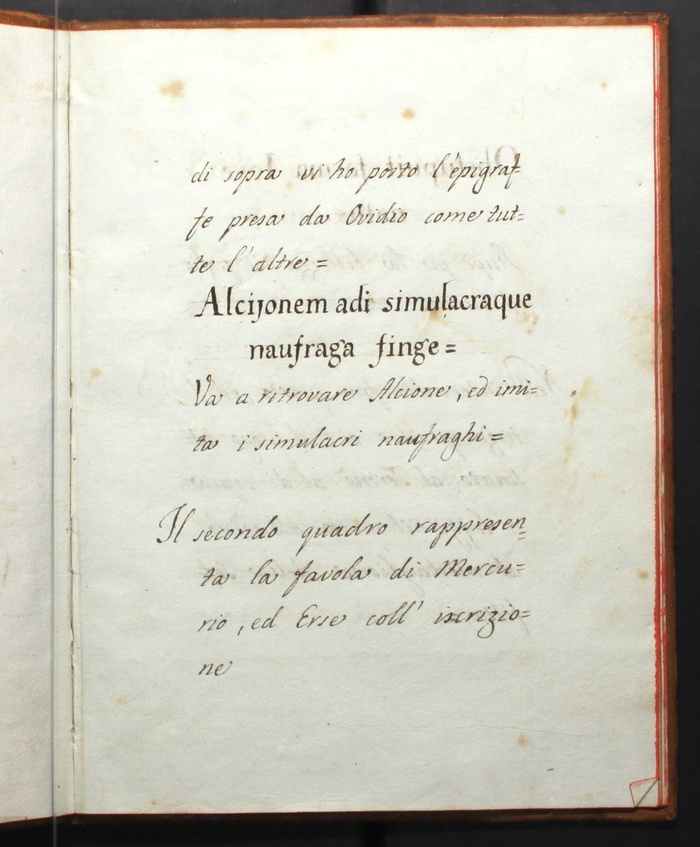 di sopra vi ho posto l'epigraf=
fe presa da Ovidio come tut=
te l'altre=
Alcijonem adi simulacraque
naufraga finge=
Va a ritrovare Alcione, ed imi=
ta i simulacri naufraghi=
Il secondo quadro rappresen=
ta la favola di Mercu=
rio, ed Erse coll' iscrizio=
ne